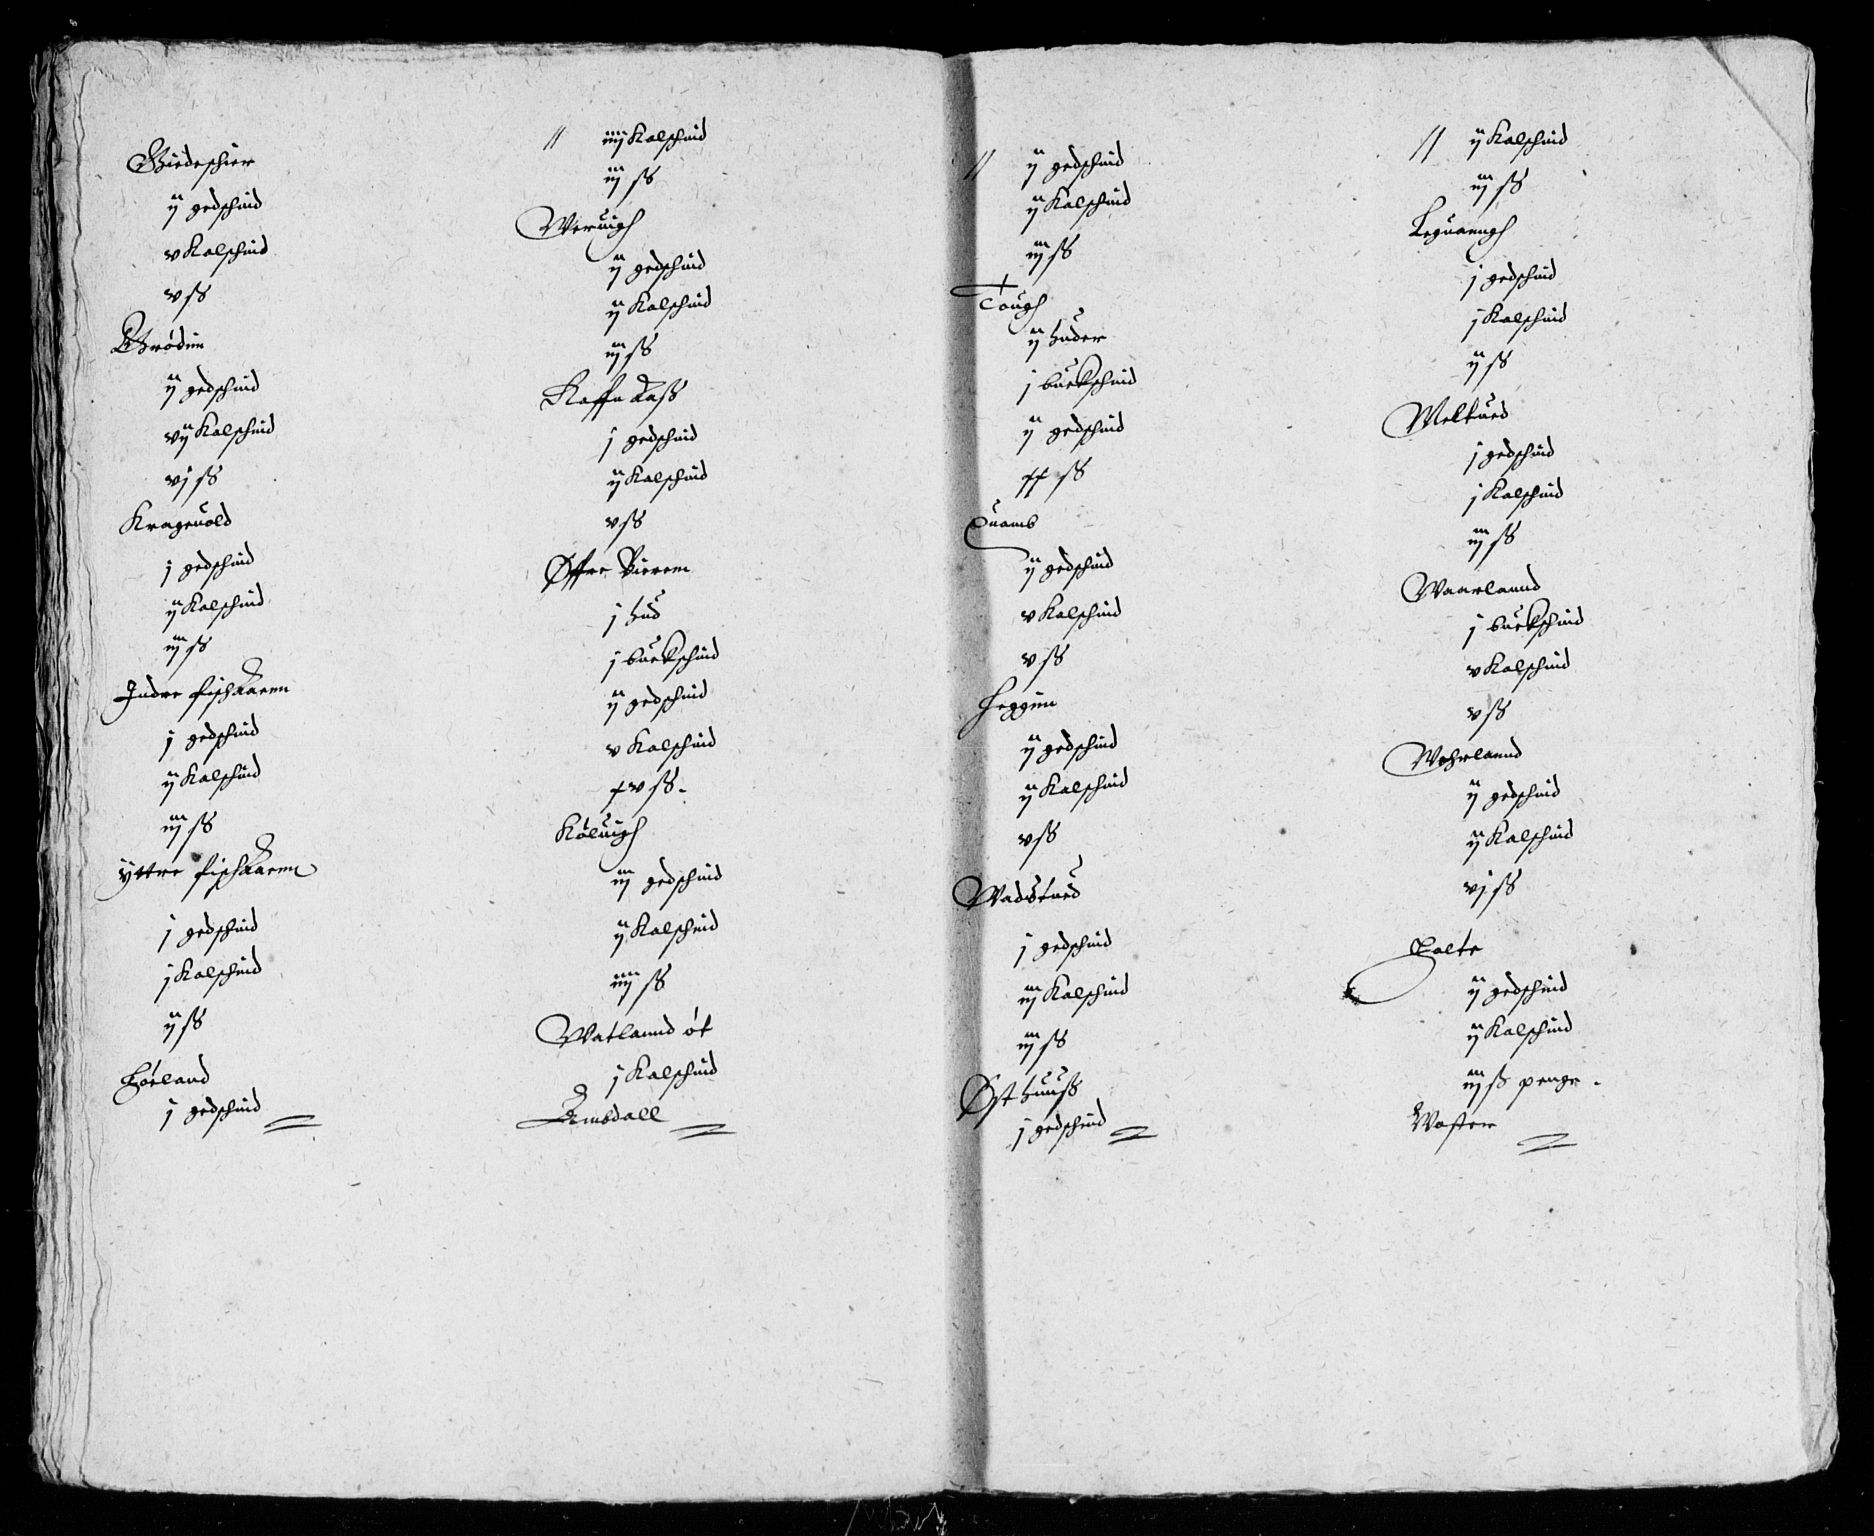 Giedeschier
ij gedschind
v Kalschind
v ß
Grødim
ij gedschind
vij Kalschind
vj ß
Krageuold
j gedschind
ij Kalschind
iij ß
Indre fischaaenn
j gedschind
ij Kalschind
iij ß
ÿttre fischaaenn
j gedschind
j Kalschind
ij ß
Høeland
j gedschind
// iiij Kalschind
iij ß
Weruigh
ij gedschind
ij Kalschind
iij ß
j gedschind
ij Kalschind
v ß
Øffre Bierem
j hud
j buckschind
ij gedschind
v Kalschind
xv ß.
Køluigh
iij gedschind
ij Kalschind
iiij ß
Watlannd øt
j Kalschind
Ambdall
// ij gedschind
ij Kalschind
iij ß
Tough
ij huder
j buckschind
ij gedschind
xx ß
Quamb
ij gedschind
v Kalschind
v ß
Heggim
ij gedschind
ij Kalschind
v ß
Wadstued
j gedschind
iij Kalschind
iij ß
Øst huuß
j gedschind
// ij Kalschind
iij ß
Leguanngh
j gedschind
j Kalschind
ij ß
Meltued
j gedschind
j Kalschind
iij ß
Waarlannd
j buckschind
v Kalschind
v ß
Wehrlannd
ij gedschind
ij Kalschind
vj ß
Holte
ij gedschind
ij Kalschind
iij ß penge.
Waster